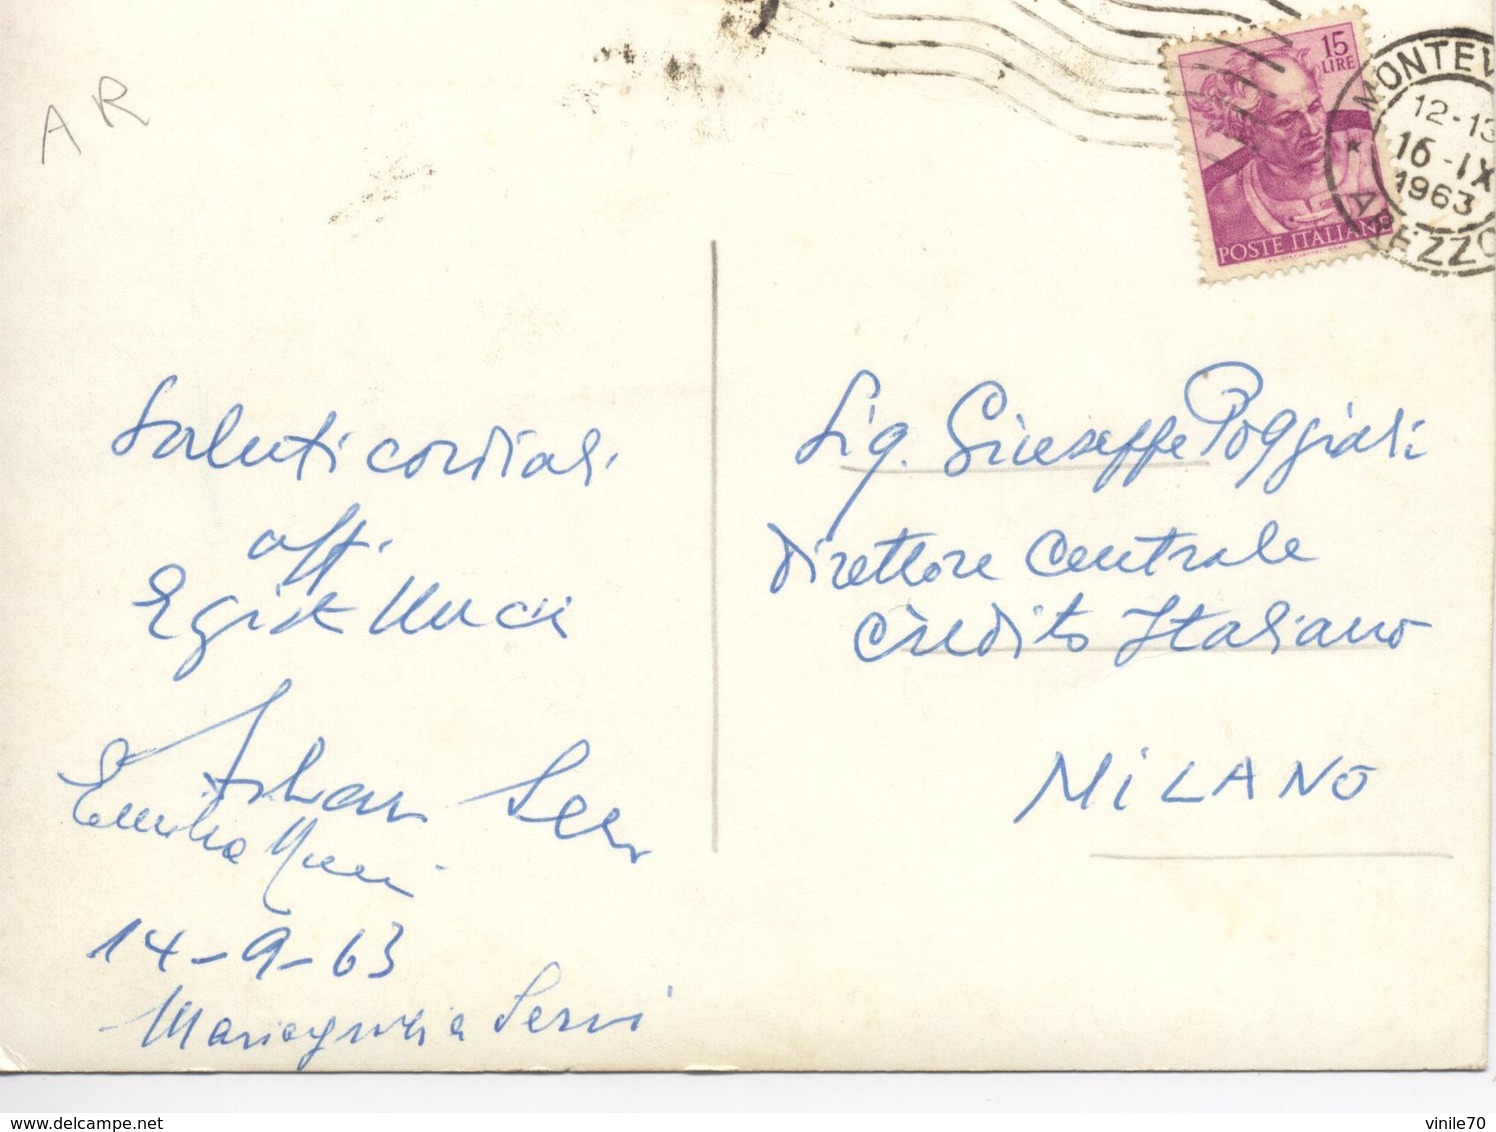 AR
15
LIRE
POSTE ITALIANE
MONTEV
12-13
16-IX
1963
AREZZO
Saluti cordiali
aff.
Egisto Nucci
Servi
Emilia Nucci
14-9-63
Mariagiulia Servi
Sig. Giuseppe Poggiali
Direttore Centrale
Credito Italiano
MILANO
delcampe.net
vinile70